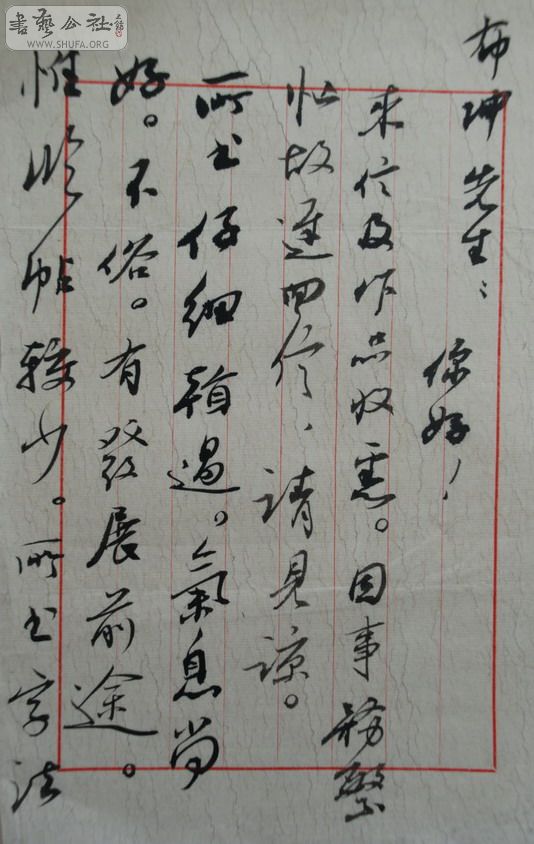 布坤先生：
你好！
来信及作品收悉。因事務繁
忙故遲回信，請見諒。
所书仔细看過。氣息尚
好。不俗。有發展前途。
惟临帖較少。所书字法
書藝公社
WWW.SHUFA.ORG